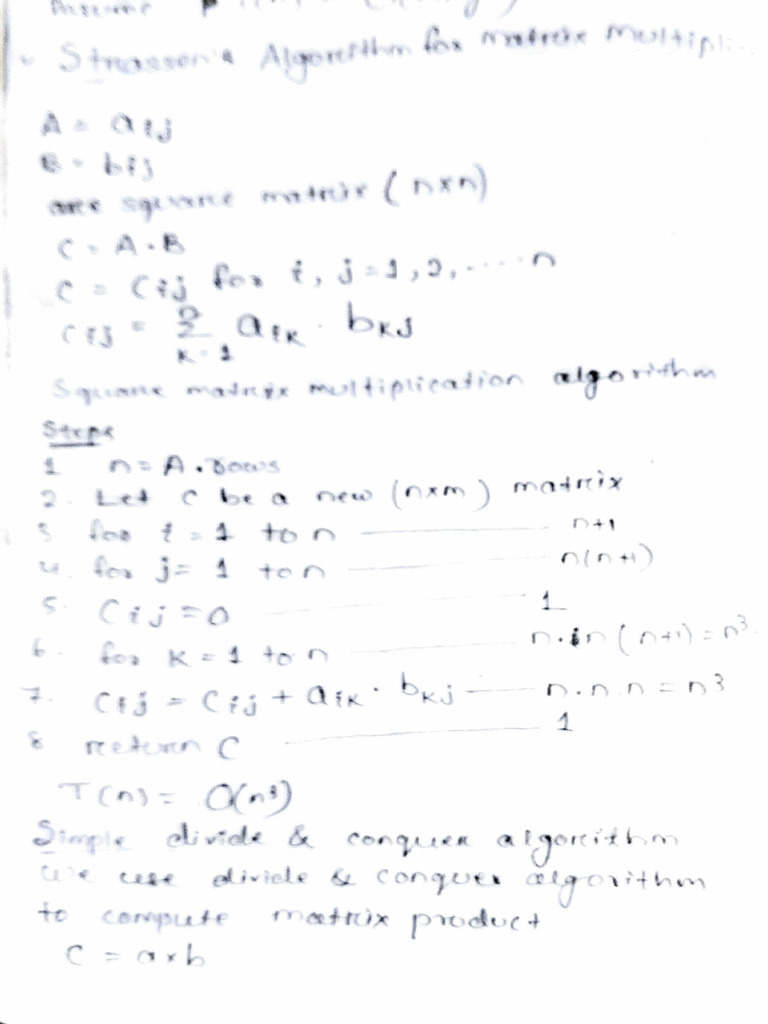 Assume
Strasson's Algorithm for matrix Multipli
A = aij
B = bij
are square matrix (n×n)
C = A · B
C = Cij for i, j = 1, 2, ..... n
Cij = n Σ k=1 aik · bkj
Square matrix multiplication algorithm
Steps
1 n = A . rows
2. Let C be a new (n×m) matrix
3 for i = 1 to n —— n+1
4. for j = 1 to n —— n(n+1)
5. Cij = 0 —— 1
6. for K = 1 to n —— n.n (n+1) = n³
7. Cij = Cij + aik · bkj —— n.n.n = n³
8 return C —— 1
T(n) = O(n³)
Simple divide & conquer algorithm
We use divide & conquer algorithm
to compute matrix product
C = a×b